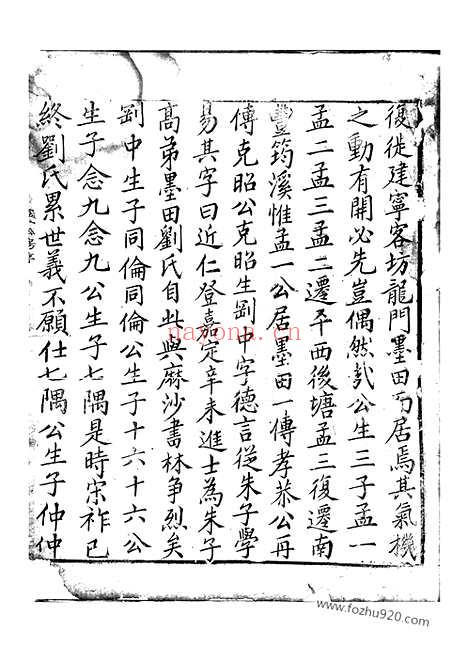 復徙建寧客坊龍門墨田而居焉其氣機
之動有開必先豈偶然哉公生三子孟一
孟二孟三孟二遷平西後塘孟三復遷南
豐筠溪惟孟一公居墨田一傳孝恭公再
傳克昭公克昭生劉中字德言從朱子學
易其字曰近仁登嘉定辛未進士為朱子
高弟墨田劉氏自此與麻沙書林爭烈矣
剛中生子同倫同倫公生子十六十六公
生子念九念九公生子七隅是時宋祚已
終劉氏累世義不願仕七隅公生子仲仲
nayona.cn
www.fozhu920.com